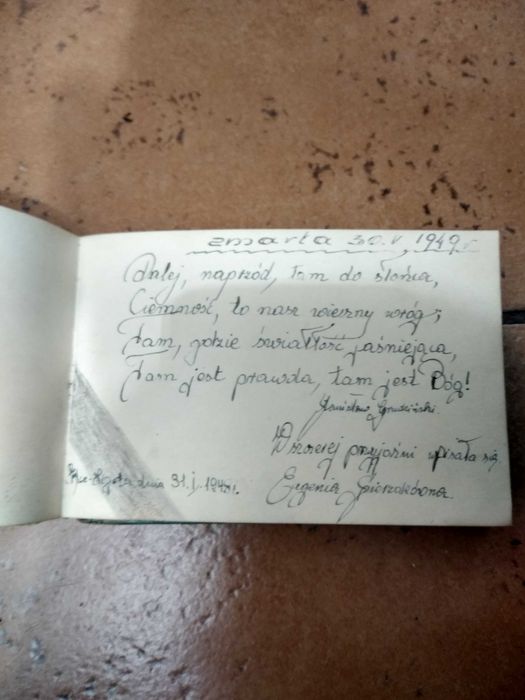 zmarła 30.V.1949 r.
Dalej, naprzód, tam do słońca,
Ciemność, to nasz wieczny wróg;
Tam, gdzie światłość jaśniejąca,
Tam jest prawda, tam jest Bóg!
Stanisław
W szczerej przyjaźni wpisała się
dnia 31.I.
Eugenia